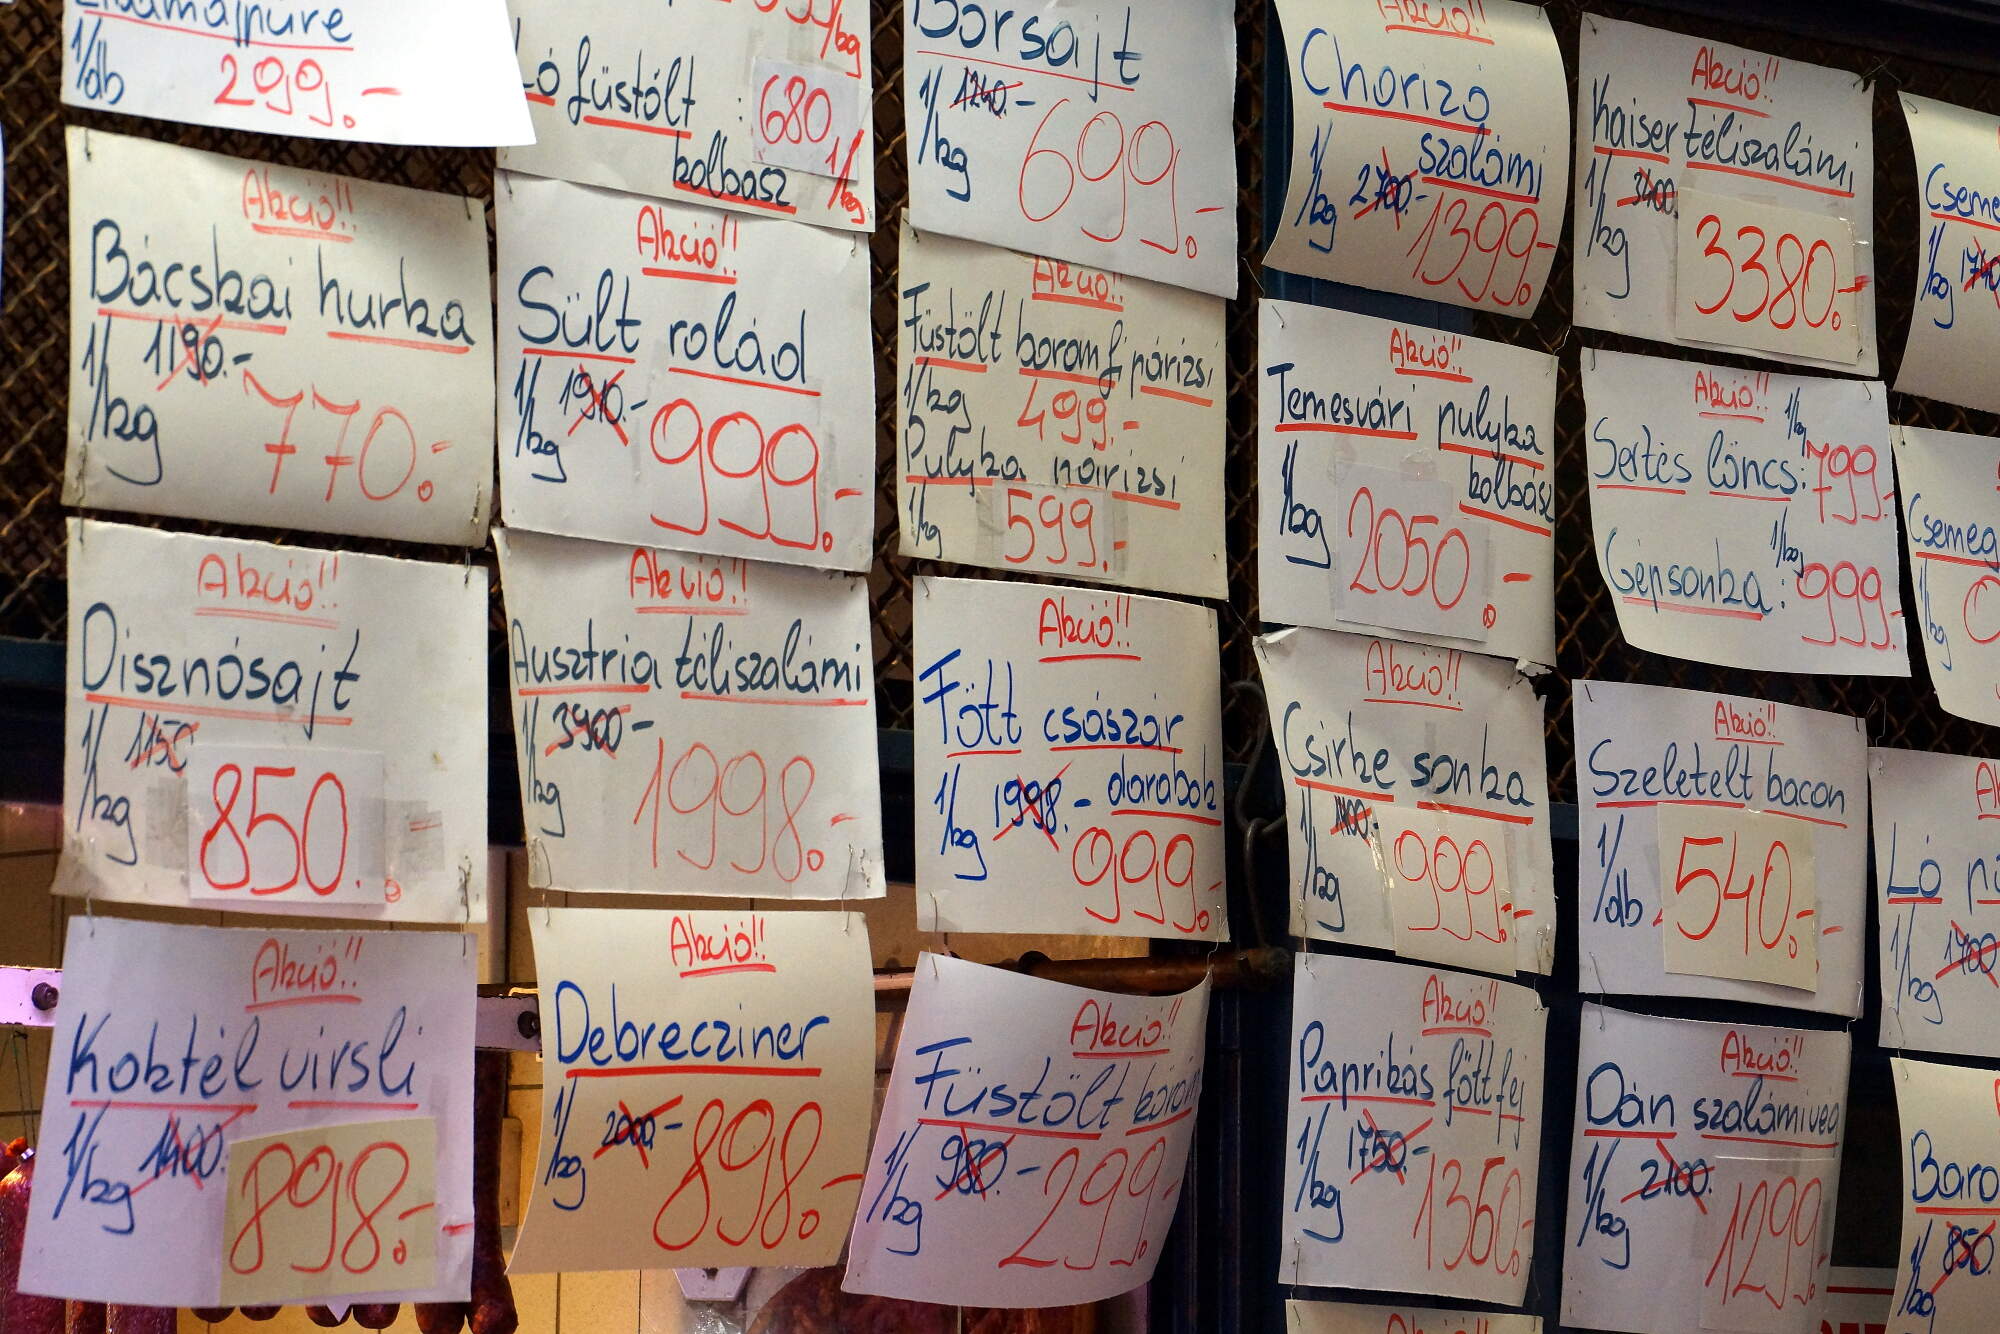 1/db 299.-
Ló füstölt : 680
kolbász 1/kg
Borsajt
1/kg 1240.- 699.-
Akció!!
Chorizó
szalámi
1/kg 2700.- 1399.-
Akció!!
Kaiser téliszalámi
1/kg 3400. 3380.-
Akció!!
Bácskai hurka
1/kg 1190.- 770.-
Akció!!
Sült rolád
1/kg 1910.- 999.-
Akció!!
Füstölt baromfi párizsi
1/kg 499.-
Pulyka párizsi
1/kg 599.-
Akció!!
Temesvári pulyka
kolbász
1/kg 2050.-
Akció!!
Sertés löncs: 1/kg 799.-
Gépsonka: 1/kg 999.-
Akció!!
Disznósajt
1/kg 1150 850.
Akció!!
Ausztria téliszalámi
1/kg 3900- 1998.-
Akció!!
Főtt császár
darabok
1/kg 1998.- 999.-
Akció!!
Csirke sonka
1/kg 999.-
Akció!!
Szeletelt bacon
1/db 540.-
Ló
1/kg 1700
Akció!!
Koktél virsli
1/kg 1400. 898.-
Akció!!
Debrecziner
1/kg 2000.- 898.-
Akció!!
Füstölt
1/kg 980.- 299.-
Akció!!
Paprikás főtt fej
1/kg 1750.- 1360.-
Akció!!
Dán szalámivég
1/kg 2100. 1299.-
1/kg 850.
Akció!!